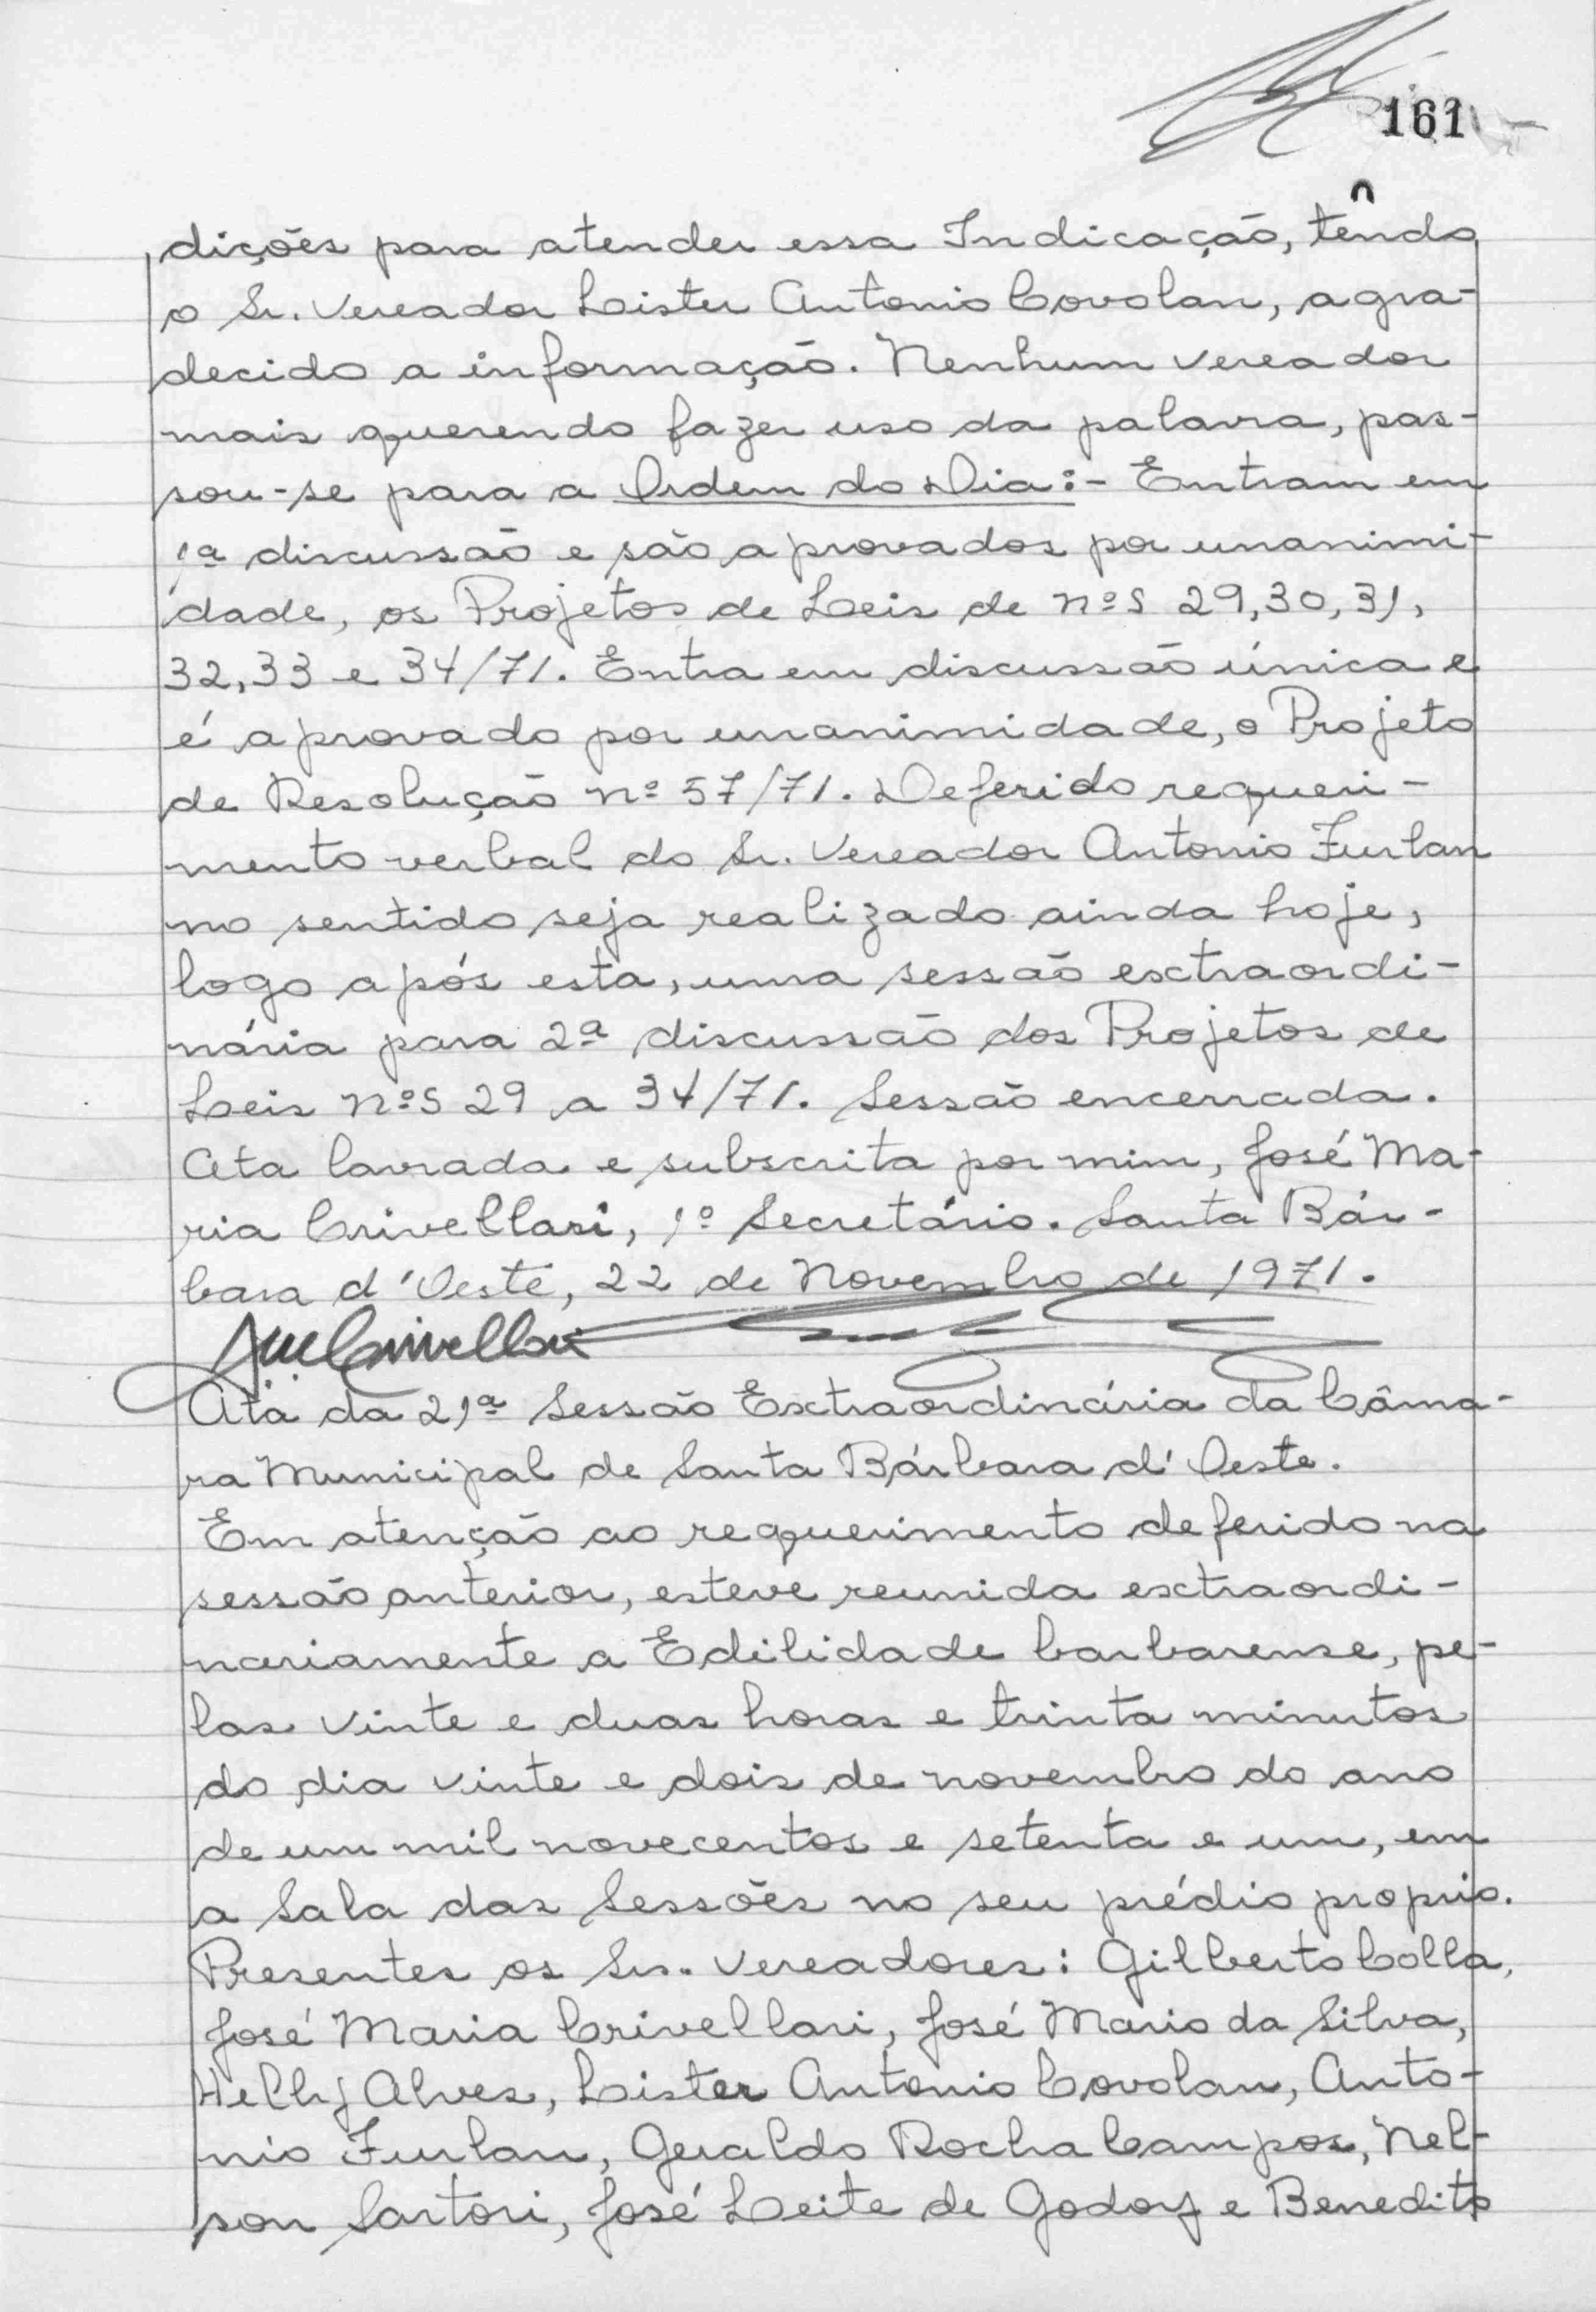 161
dições para atender essa Indicação, têndo
o Sr. Vereador Lister Antonio Covolan, agra-
decido a informação. Nenhum vereador
mais querendo fazer uso da palavra, pas-
sou-se para a Ordem do Dia:- Entram em
1ª discussão e são aprovados por unanimi-
dade, os Projetos de Leis de nºs 29,30,31,
32,33 e 34/71. Entra em discussão única e
é aprovado por unanimidade, o Projeto
de Resolução nº 57/71. Deferido requeri-
mento verbal do Sr. Vereador Antonio Furlan
no sentido seja realizado ainda hoje,
logo após esta, uma sessão extraordi-
nária para 2ª discussão dos Projetos de
Leis nºs 29 a 34/71. Sessão encerrada.
Ata lavrada e subscrita por mim, José Ma-
ria Crivellari, 1º Secretário. Santa Bár-
bara d'Oeste, 22 de Novembro de 1971.
Ata da 21ª Sessão Extraordinária da Câma-
ra Municipal de Santa Bárbara d'Oeste.
Em atenção ao requerimento deferido na
sessão anterior, esteve reunida extraordi-
nariamente a Edilidade barbarense, pe-
las vinte e duas horas e trinta minutos
do dia vinte e dois de novembro do ano
de um mil novecentos e setenta e um, em
a Sala das Sessões no seu prédio proprio.
Presentes os Srs. Vereadores: Gilberto Colla,
José Maria Crivellari, José Mario da Silva,
Helly Alves, Lister Antonio Covolan, Anto-
nio Furlan, Geraldo Rocha Campos, Nel-
son Sartori, José Leite de Godoy e Benedito